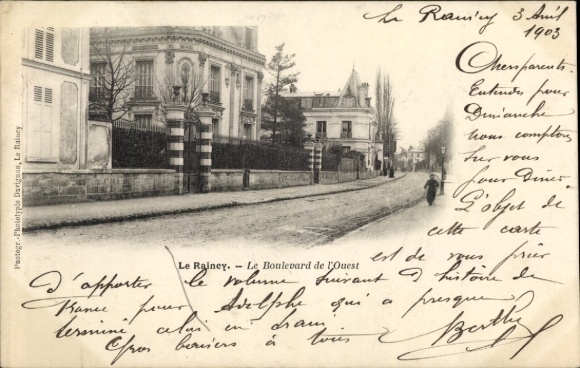 Le Raincy 3 Avril
1903
Chers parents.
Entendu pour
Dimanche
nous comptons
sur vous
pour Dîner.
L'objet de
cette carte
est de vous prier
d'apporter le volume suivant d'histoire de
France pour Adolphe qui a presque
terminé celui en train
Gros baisers à tous
Berthe
Le Raincy. -- Le Boulevard de l'Ouest
Photogr.-Phototypie Davignon, Le Raincy